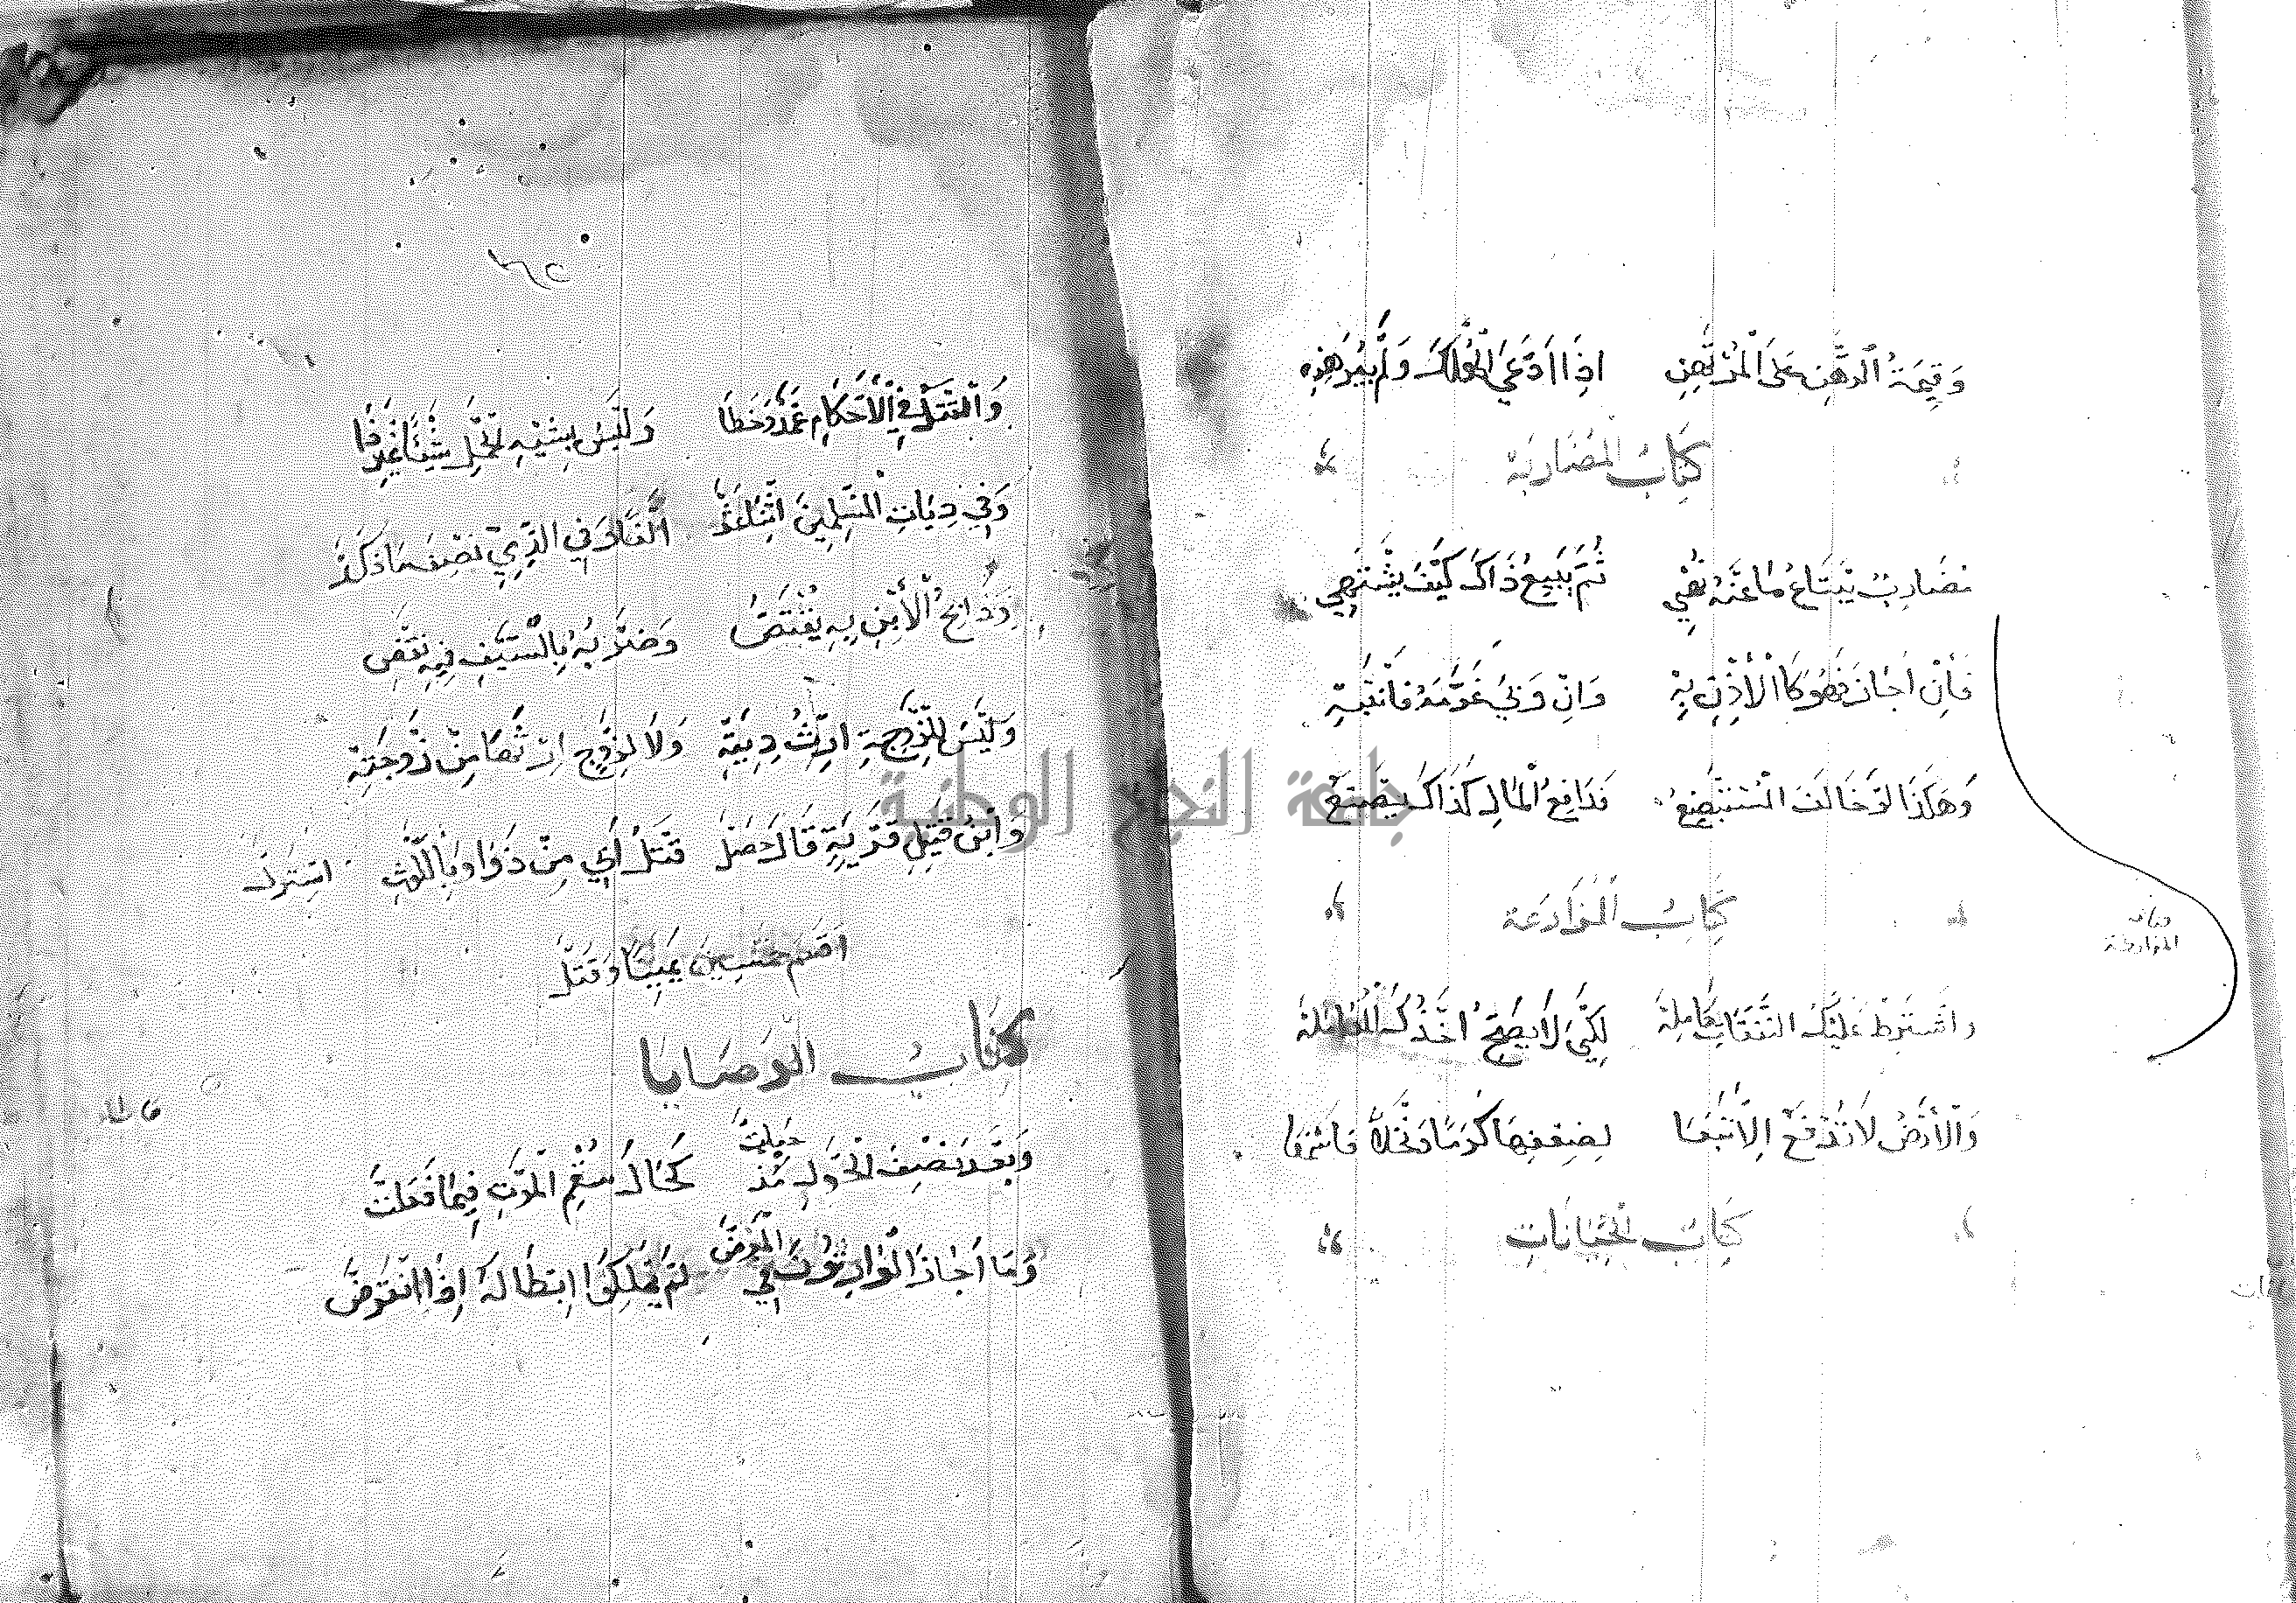 وَقِيمَةُ الرَّهْنِ عَلَى الْمُرْتَهِنِ اذَا ادَّعَى الْهَلَاكَ وَلَمْ يُبَرْهِنِ
كِتَابُ المُضَارَبَة
مُضَارِبٌ يَبْتَاعُ مَا عَنْهُ نُهِي ثُمَّ يَبِيعُ ذَاكَ كَيْفَ يَشْتَهِي
فَأِنْ اَجَازَ فَهُوَ كَالْأِذْنِ بِهِ وَانْ فَانْتَبِهِ
وَهَكَذَا لَوْ خَالَفَ الْمُسْتَبْضِعُ فَدَافِعُ الْمَالِ كَذَاكَ يَصْنَعُ
كِتَابُ الْمُزَارَعَة
كتاب
المزارعة
وَاشْتَرَطَ عَلَيْكَ النَّفَقَاتِ كَامِلَة لِكَيْ لَا يَصِحَّ اَخْذُكَ الْمُعَامَلَة
وَالْأَرْضُ لَا تُدْفَعُ اِلَّا تَبَعَا لِضِعْفِهَا كَرْمًا وَنَخْلًا
كِتَابُ الْجِنَايَاتِ
وَالْقَتْلُ فِي الْأَحْكَامِ عَمْدٌ وَخَطَا وَلَيْسَ بِشِبْهِ
وَفِي دِيَاتِ الْمُسْلِمِينَ اثْنَا عَشَرْ اَلْفًا وَفِي الذِّمِّيِ نِصْفُ مَا ذَكَرْ
وَذَابِحُ الْأِبْنِ بِهِ يُقْتَصُّ وَضَرْبُهُ بِالسَّيْفِ فِيهِ نَقْصُ
وَلَيْسَ لِلزَّوْجَةِ ارْثُ دِيَةِ وَلَا لِزَوْجٍ ارْثُهَا مِنْ زَوْجَتِهْ
وَابْنُ قَتِيلِ قَرْيَةٍ قَالَ قَتْلُ أَبِي مِنْ ذَا وَبِاللَّوْثِ
اَقْسَمَ خَمْسِينَ يَمِينًا وَقَتَلْ
كِتَابُ الْوَصَايَا
وَبَعْدَ نِصْفِ الْحَوْلِ مُذْ حَمَلَتْ كَحَالِ سُقْمِ الْمَوْتِ فِيمَا فَعَلَتْ
وَمَا اَجَازَ الْوَارِثُونَ فِي الْمَرَضْ لَمْ يَمْلِكُوا ابْطَالَهُ
جامعة النجاح الوطنية